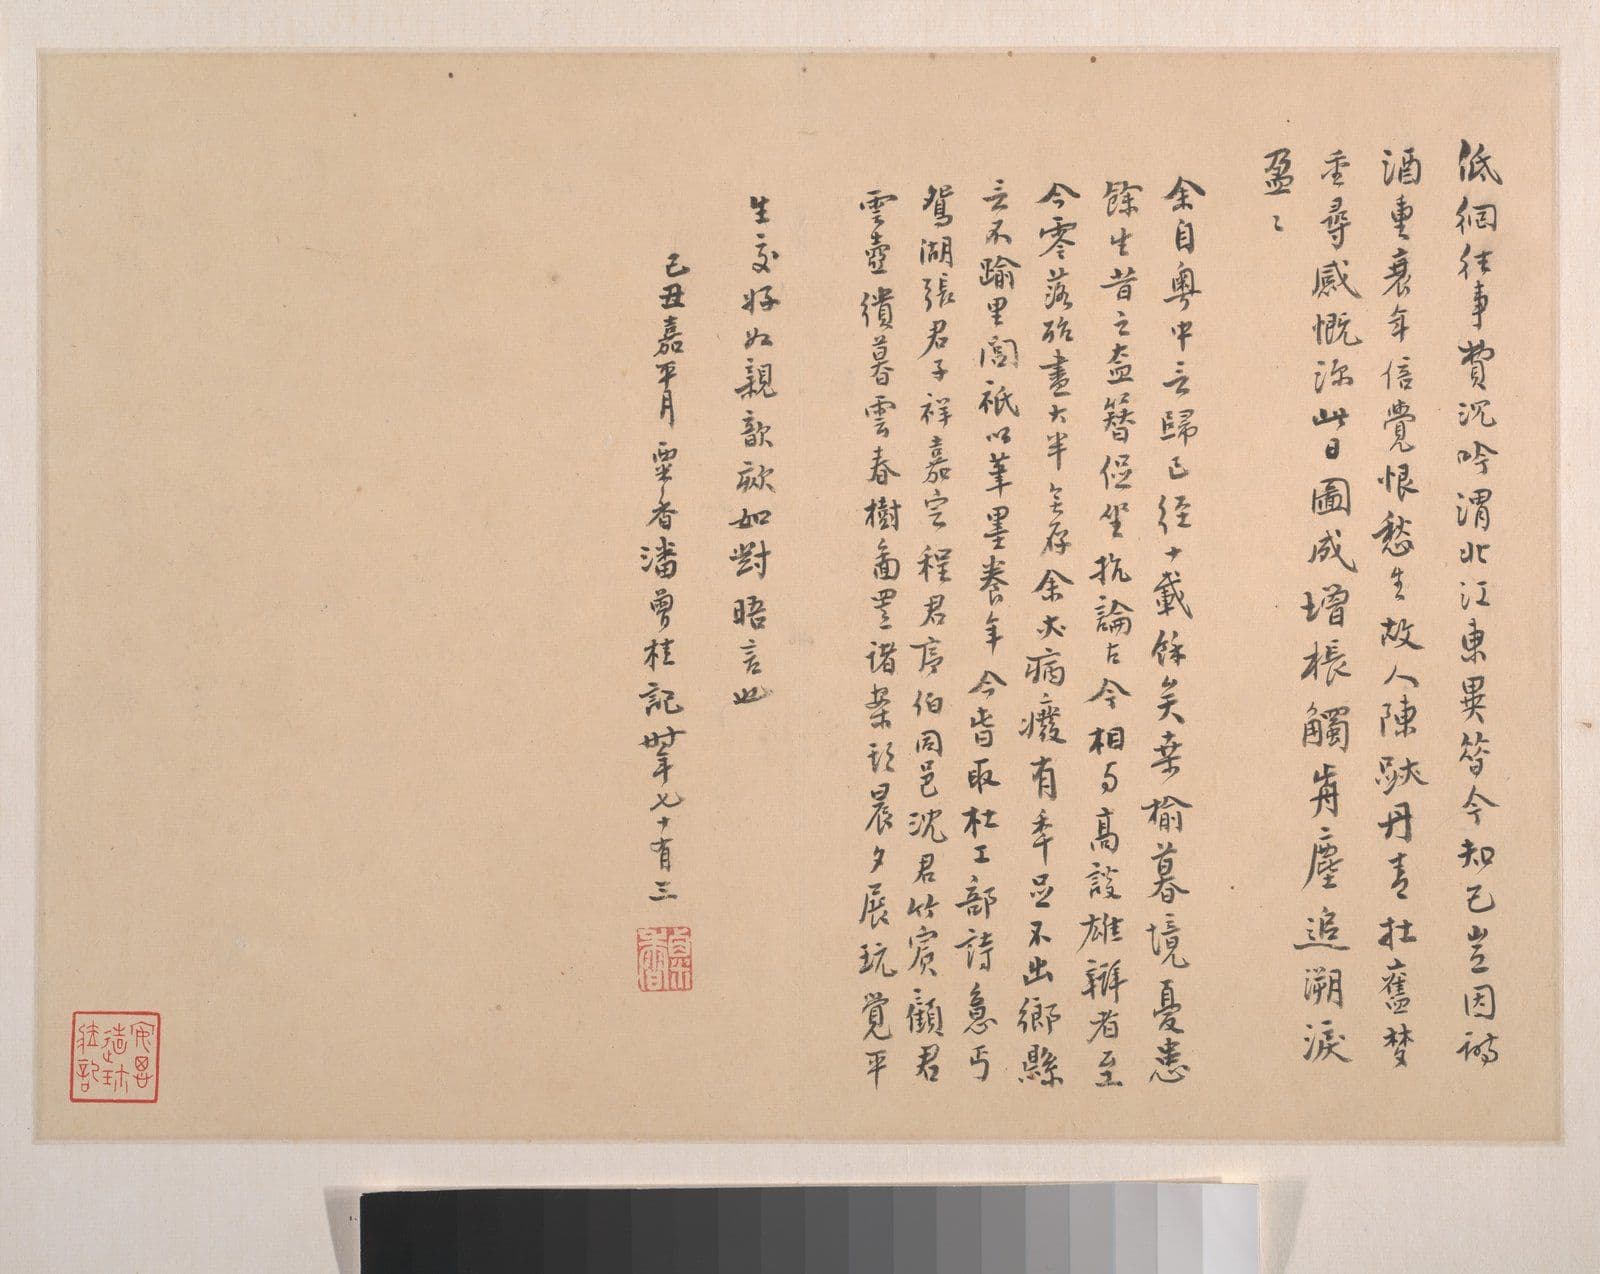 低徊往事費沉吟渭北江東異昔今知己豈因詩
酒重衰年倍覺恨愁生故人陳跡丹青在舊夢
重尋感慨深此日圖成增悵觸前塵追溯淚
盈〻
余自粵中言歸已經十載餘矣桑榆暮境憂患
餘生昔之盍簪促坐抗論古今相與高談雄辯者至
今零落殆盡大半無存余亦病癈有年足不出鄉縣
言不踰里閭祇以筆墨養年今皆取杜工部詩意丐
鴛湖張君子祥嘉定程君序伯同邑沈君竹賓顧君
雲壺繢暮雲春樹圖置諸案頭晨夕展玩覺平
生交好如親歆欬如對晤言也
己丑嘉平月粟香潘曾桂記時年七十有三